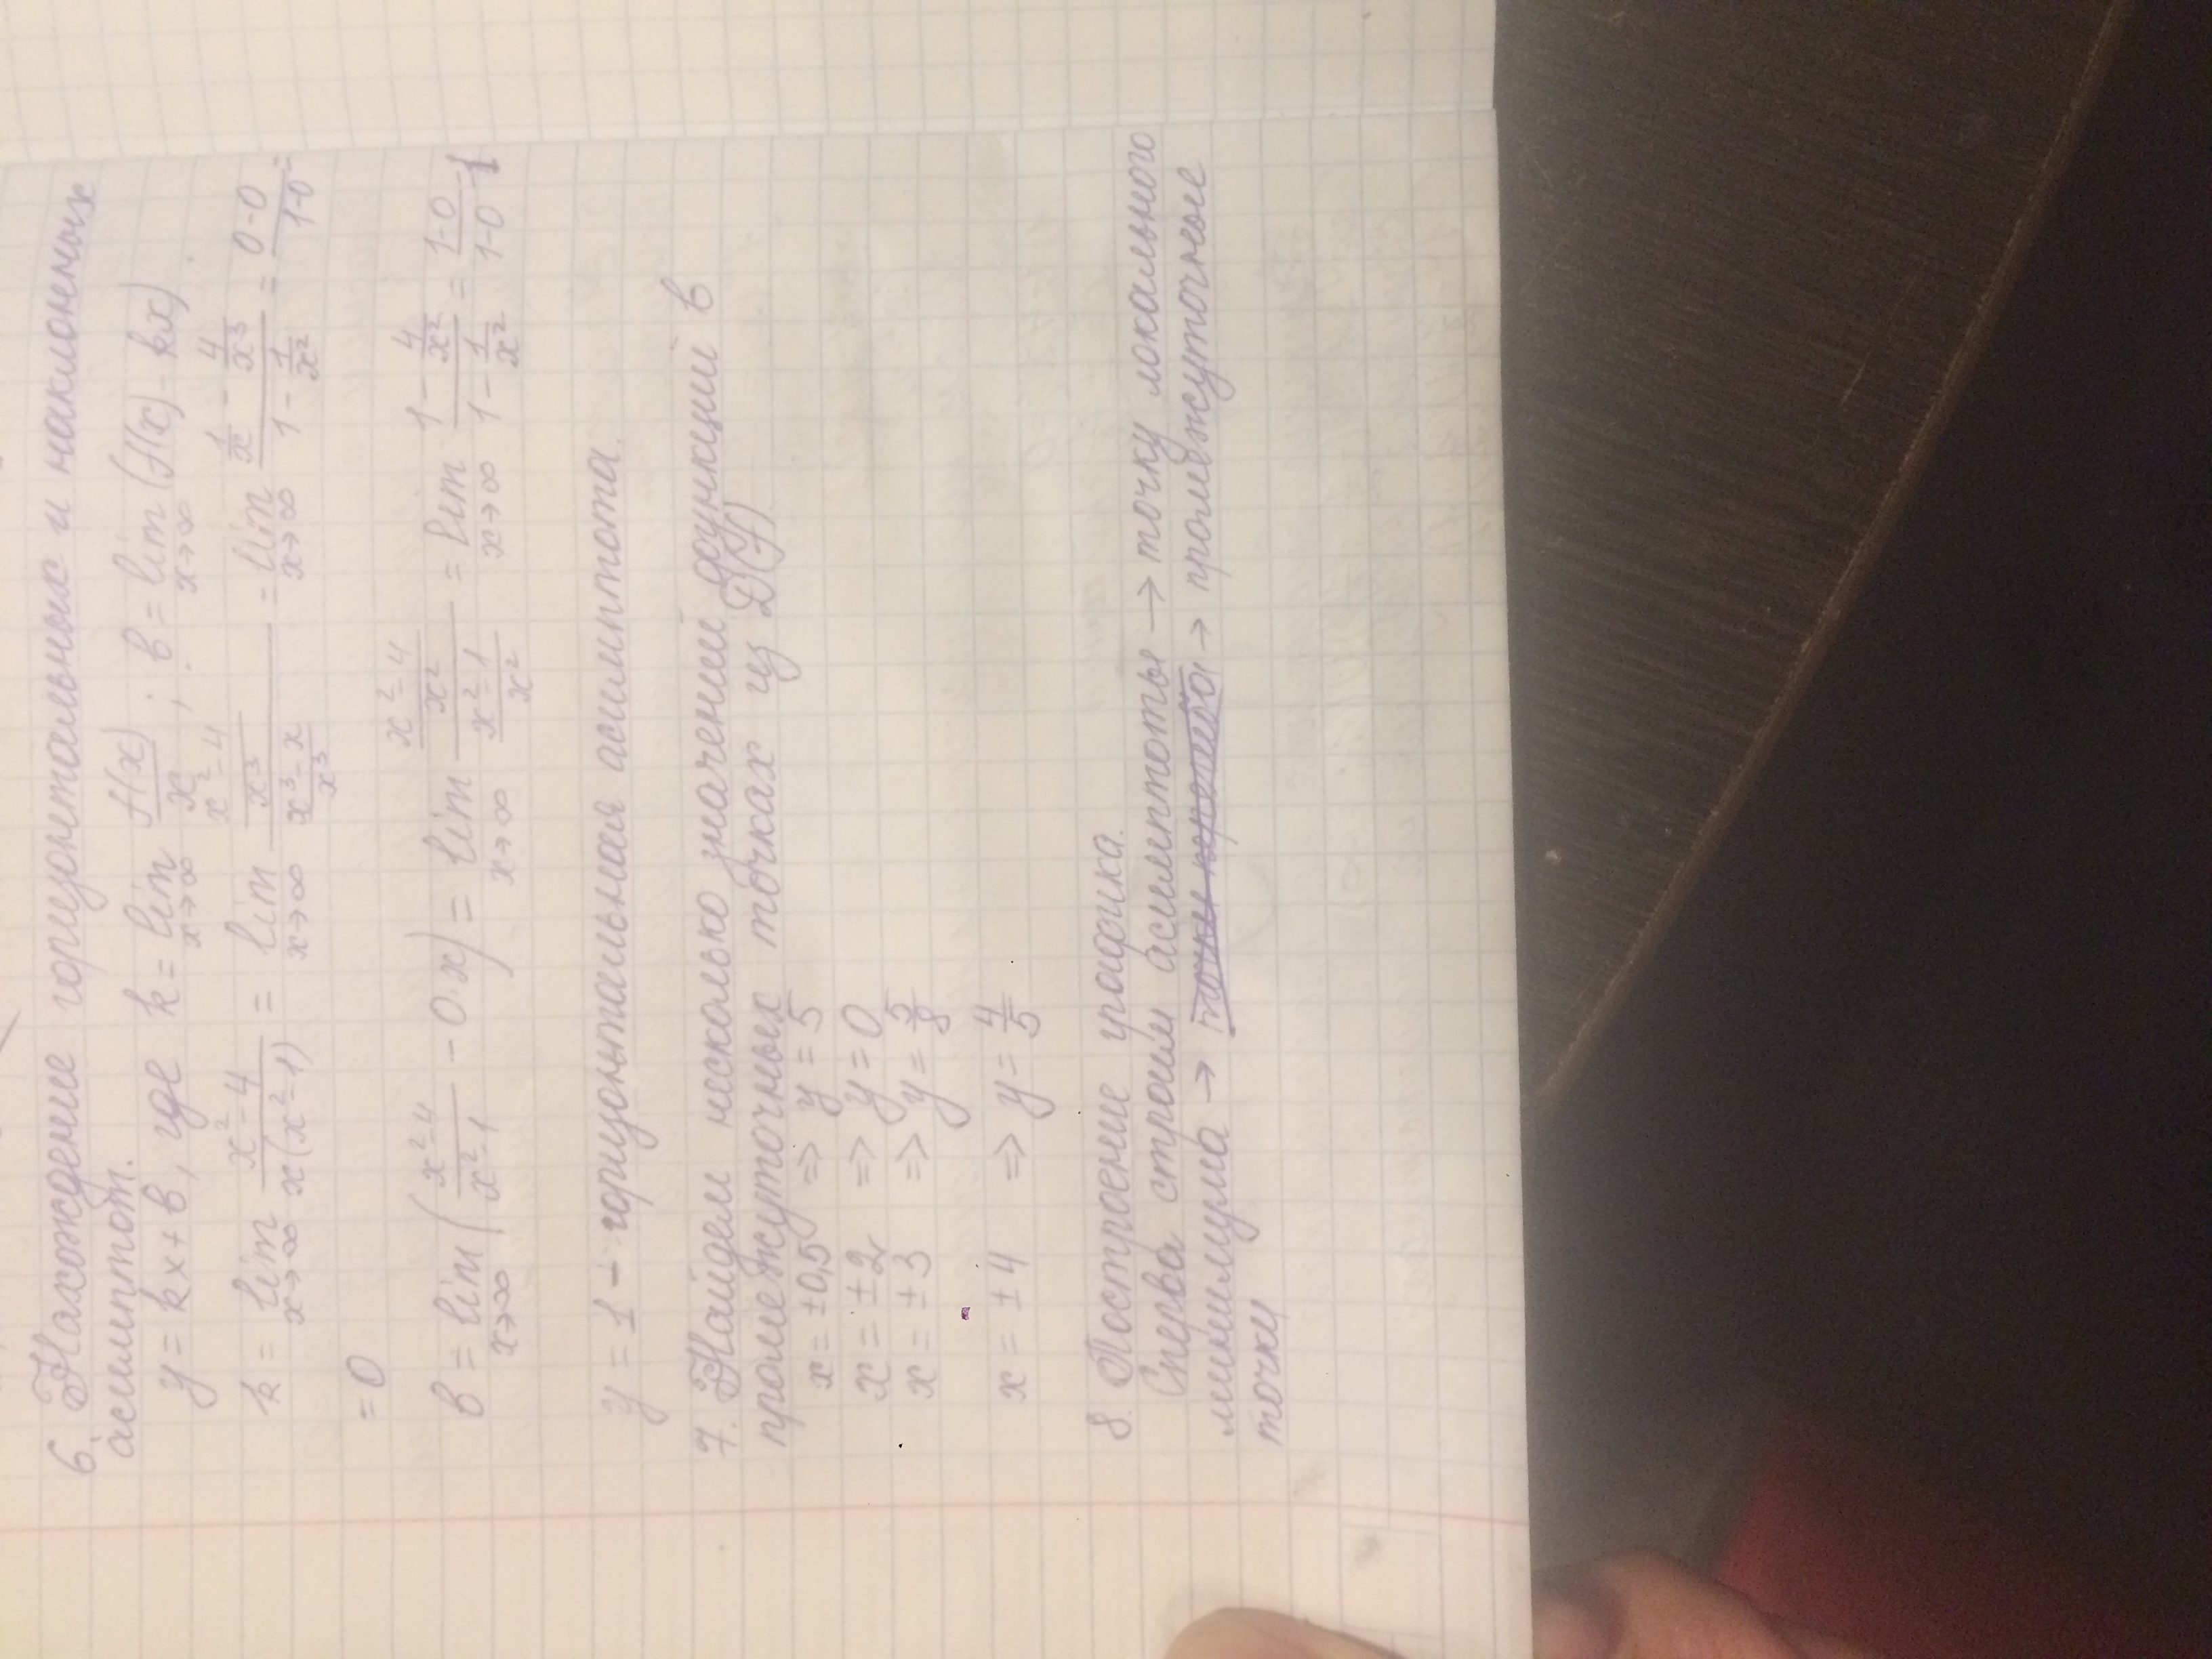 6. Нахождение горизонтальных и наклонных
асимптот.
y = kx + b, где k = lim x→∞ f(x)/x ; b = lim x→∞ (f(x) - kx)
k = lim x→∞ (x² - 4)/(x(x² - 1)) = lim x→∞ ((x² - 4)/x³)/((x³ - x)/x³) = lim x→∞ (1/x - 4/x³)/(1 - 1/x²) = (0 - 0)/(1 - 0) =
= 0
b = lim x→∞ ((x² - 4)/(x² - 1) - 0·x) = lim x→∞ ((x² - 4)/x²)/((x² - 1)/x²) = lim x→∞ (1 - 4/x²)/(1 - 1/x²) = (1 - 0)/(1 - 0) = 1
y = 1 - горизонтальная асимптота.
7. Найдем несколько значений функций в
промежуточных точках из D(f).
x = ±0,5 => y = 5
x = ±2 => y = 0
x = ±3 => y = 5/8
x = ±4 => y = 4/5
8. Построение графика.
Сперва строим асимптоты → точку локального
минимума → → промежуточные
точки